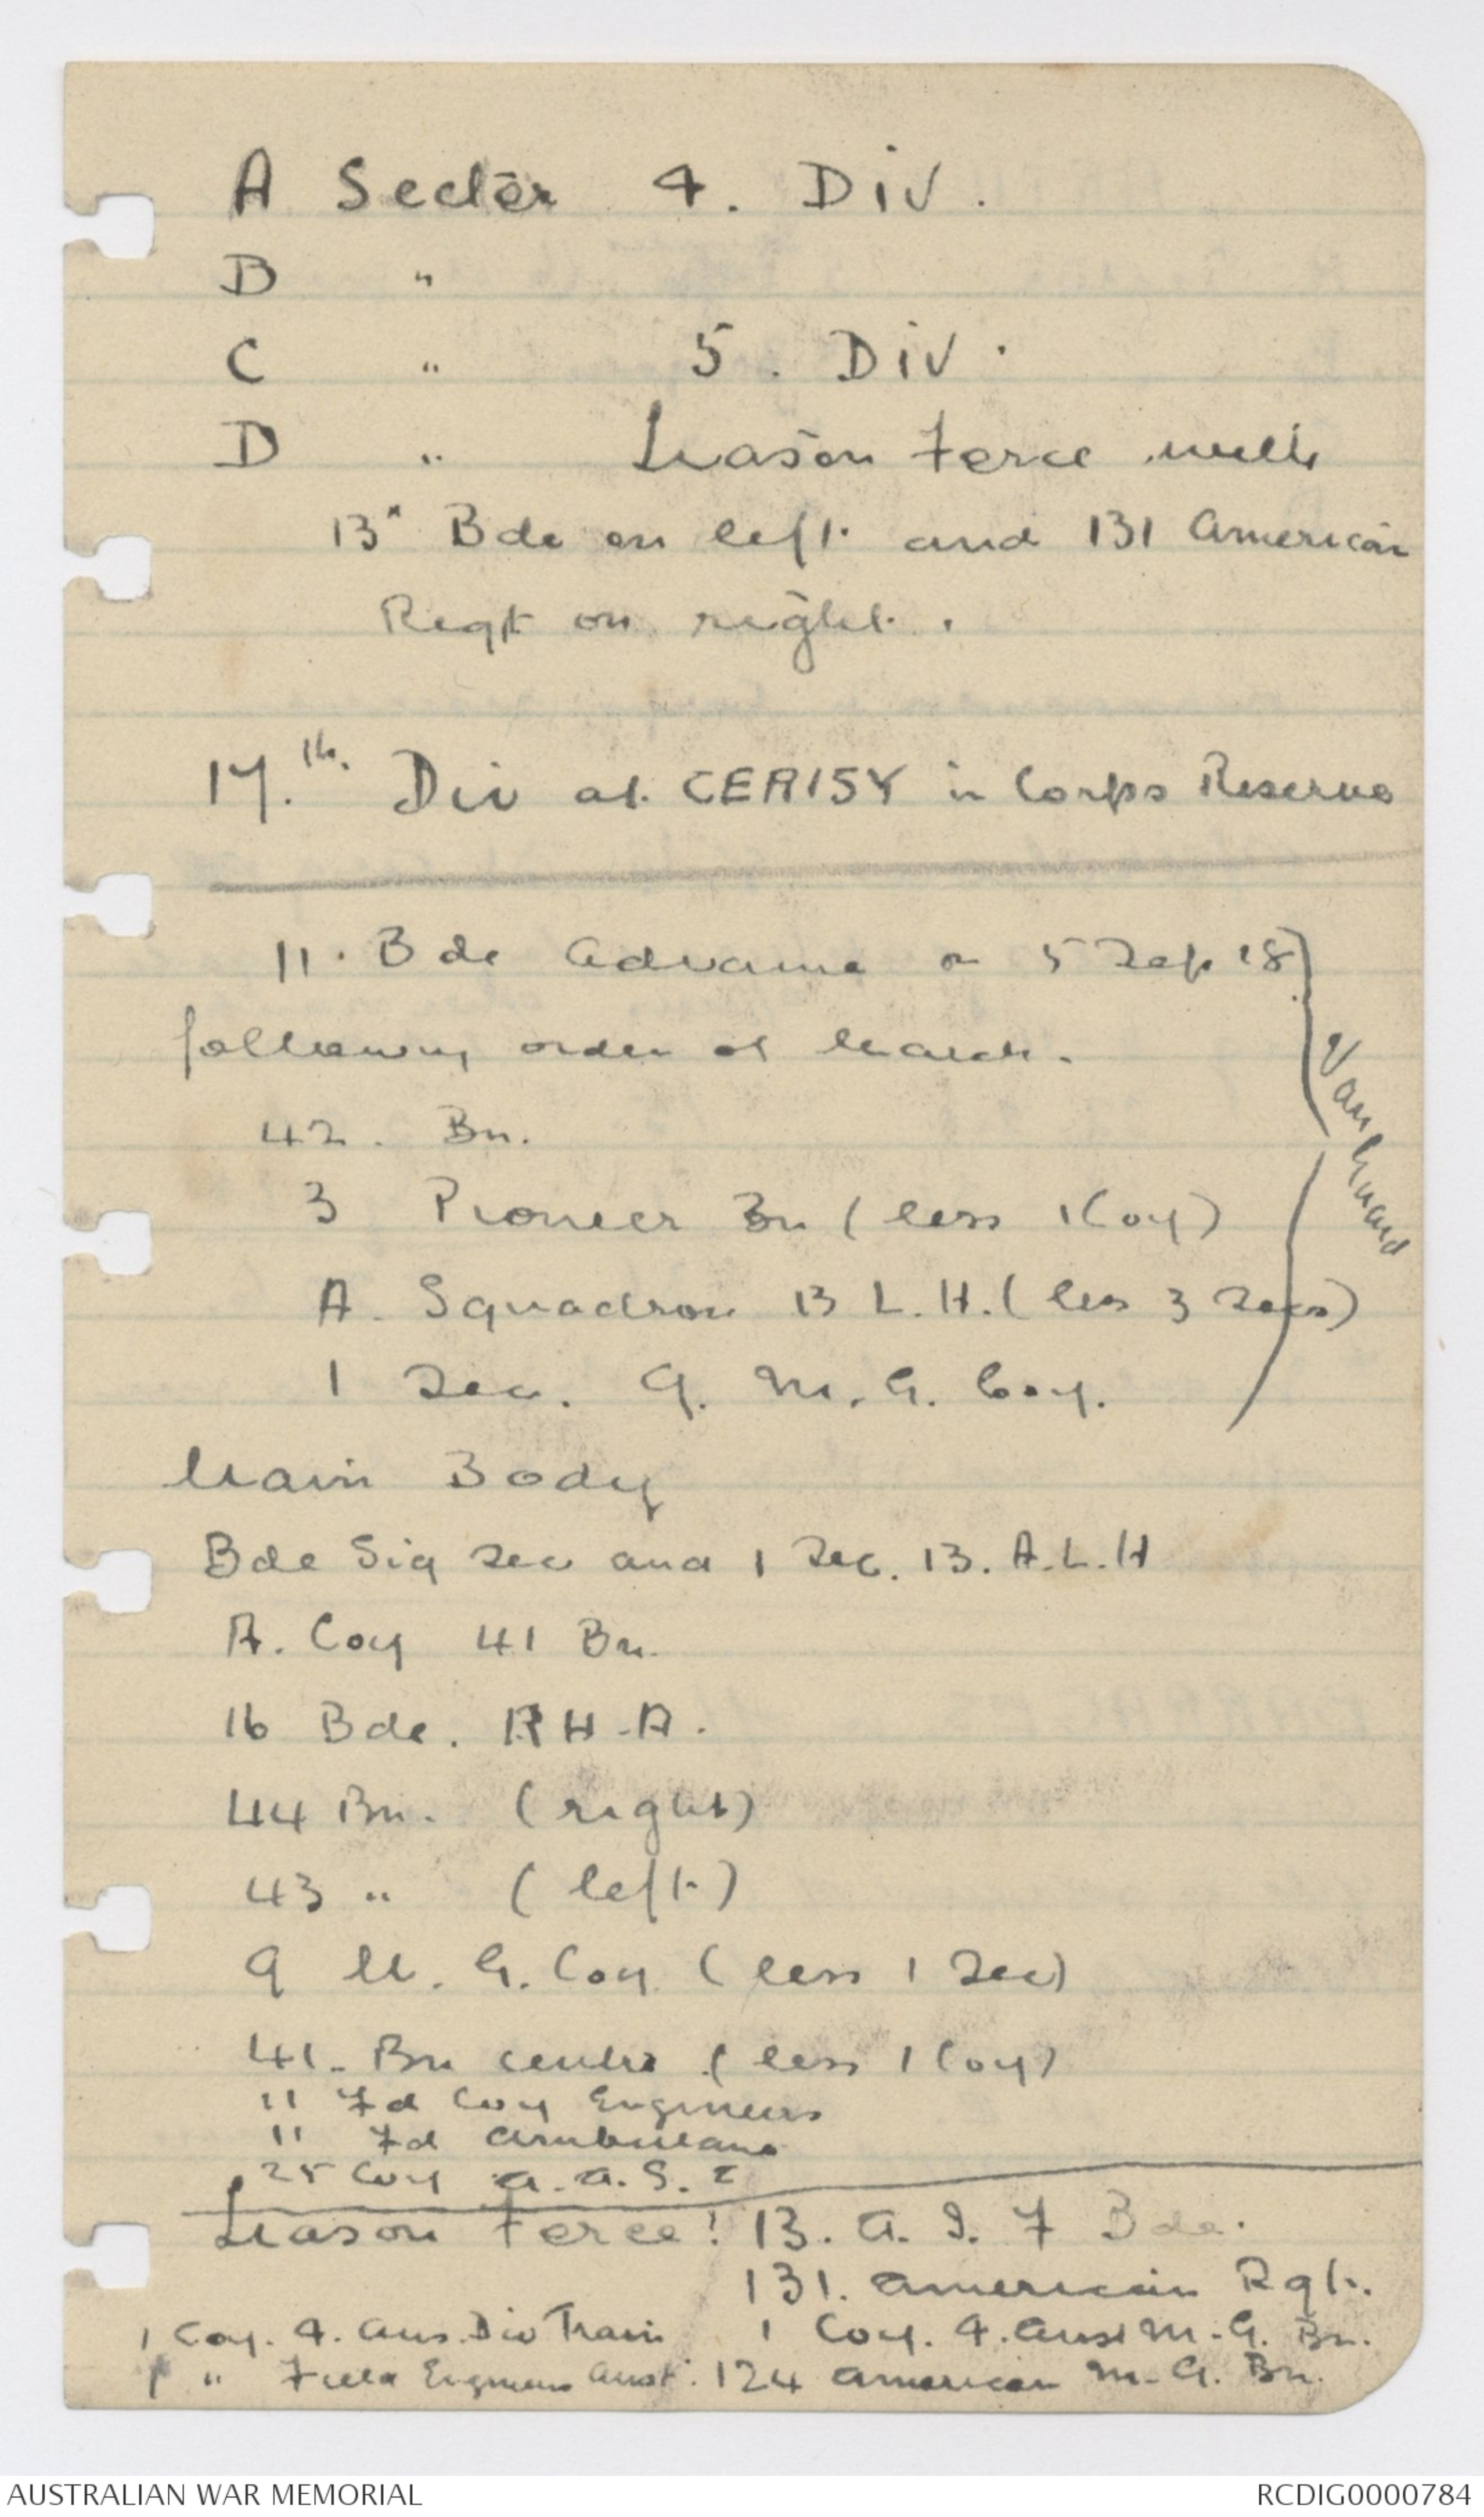 A Sector 4. Div.
B "
C " 5. Div.
D " Liason Force with
13" Bde on left and 131 American
Regt on right.
17.th. Div at CERISY in Corps Reserve
11. Bde advance on 5 Sep 18
following order of March.
42. Bn.
3 Pioneer Bn (less 1 Coy)
A. Squadron 13 L.H. (less 3 Secs)
1 Sec. 9. M.G. Coy.
Vanguard
Main Body
Bde Sig Sec and 1 Sec. 13. A.L.H
A. Coy 41 Bn.
16 Bde. RH.A.
44 Bn. (right)
43 " (left)
9 M.G. Coy (less 1 Sec)
41. Bn centre (less 1 Coy)
11 Fd Coy Engineers
11 Fd Ambulance
25 Coy A.A.S.C
Liason Force! 13. A.I.F Bde.
131. American Rgt.
1 Coy. 4. Aus. Div Train 1 Coy. 4. Aust M.G. Bn.
1 " Field Engineers Aust. 124 American M.G. Bn.
AUSTRALIAN WAR MEMORIAL RCDIG0000784